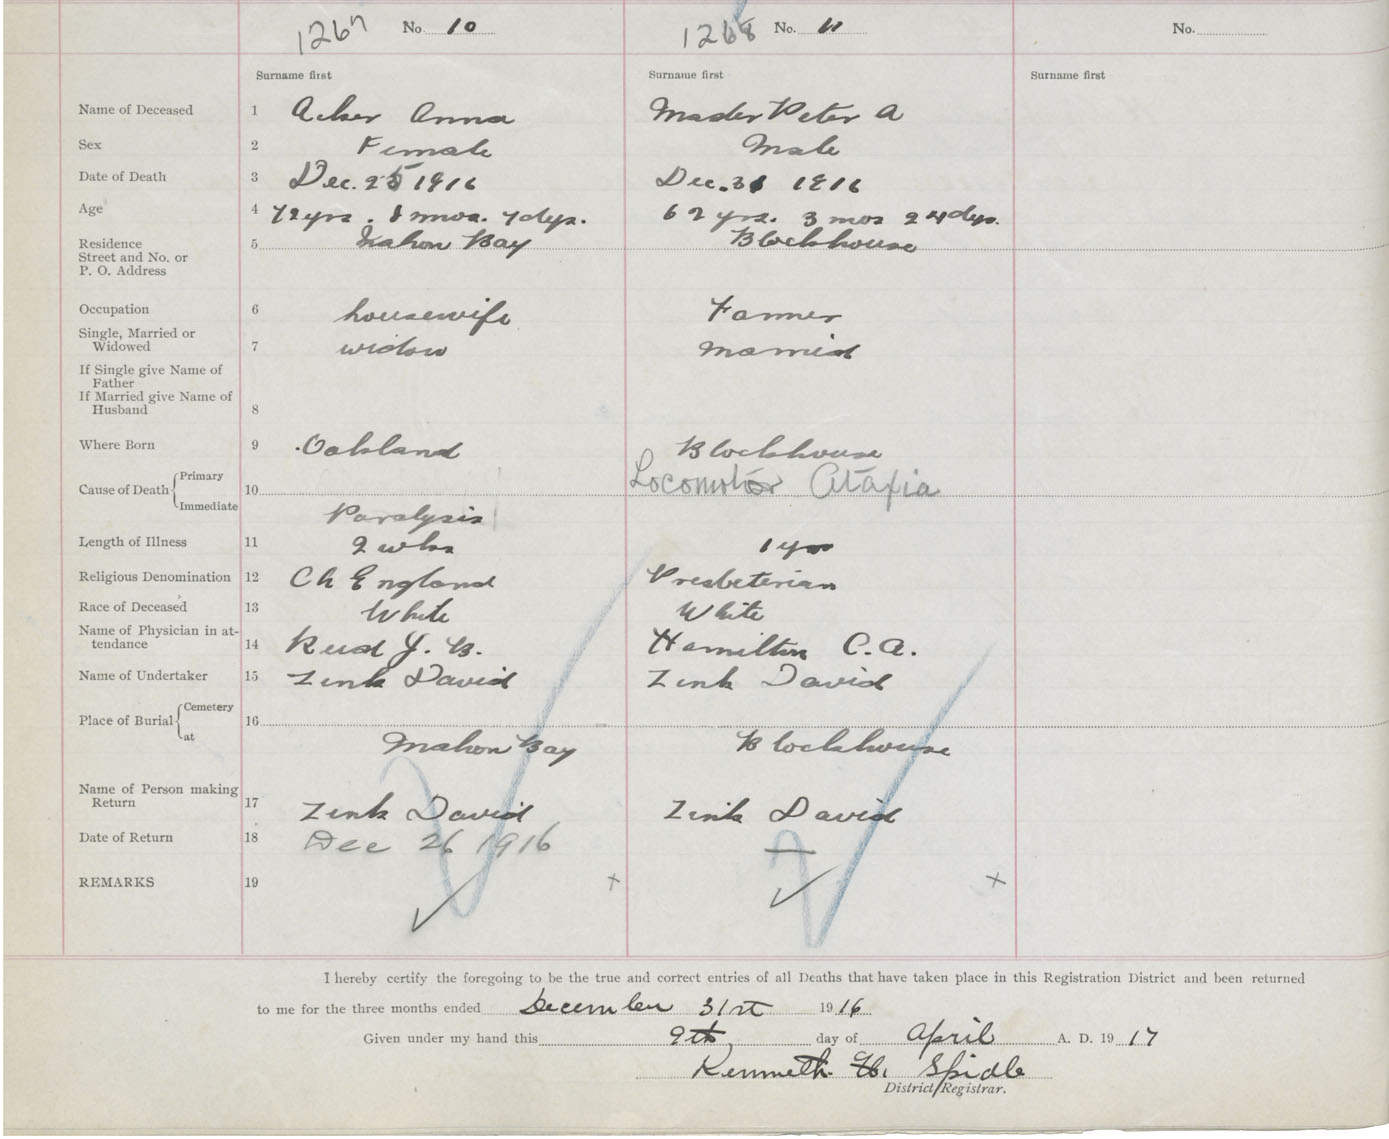 1267 No. 10 1268 No. 11 No.
Surname first Surname first Surname first
Name of Deceased 1 Acker Anna Mader Peter A
Sex 2 Female Male
Date of Death 3 Dec. 25 1916 Dec. 31 1916
Age 4 72 yrs. 1 mos. 7 dys. 62 yrs. 3 mos 24 dys.
Residence 5 Mahon Bay Blockhouse
Street and No. or
P. O. Address
Occupation 6 housewife Farmer
Single, Married or
Widowed 7 widow Married
If Single give Name of
Father
If Married give Name of
Husband 8
Where Born 9 Oakland Blockhouse
Primary
Cause of Death 10 Locomotor Ataxia
Immediate Paralysis
Length of Illness 11 2 wks 1 yr
Religious Denomination 12 Ch England Presbeterian
Race of Deceased 13 White White
Name of Physician in at-
tendance 14 J. B. Hamilton C. A.
Name of Undertaker 15 Zink David Zink David
Cemetery
Place of Burial 16
at Mahon Bay Blockhouse
Name of Person making
Return 17 Zink David Zink David
Date of Return 18 Dec 26 1916 —
REMARKS 19
I hereby certify the foregoing to be the true and correct entries of all Deaths that have taken place in this Registration District and been returned
to me for the three months ended December 31st 1916
Given under my hand this 9th day of April A. D. 1917
Kenneth H. Spidle
District Registrar.